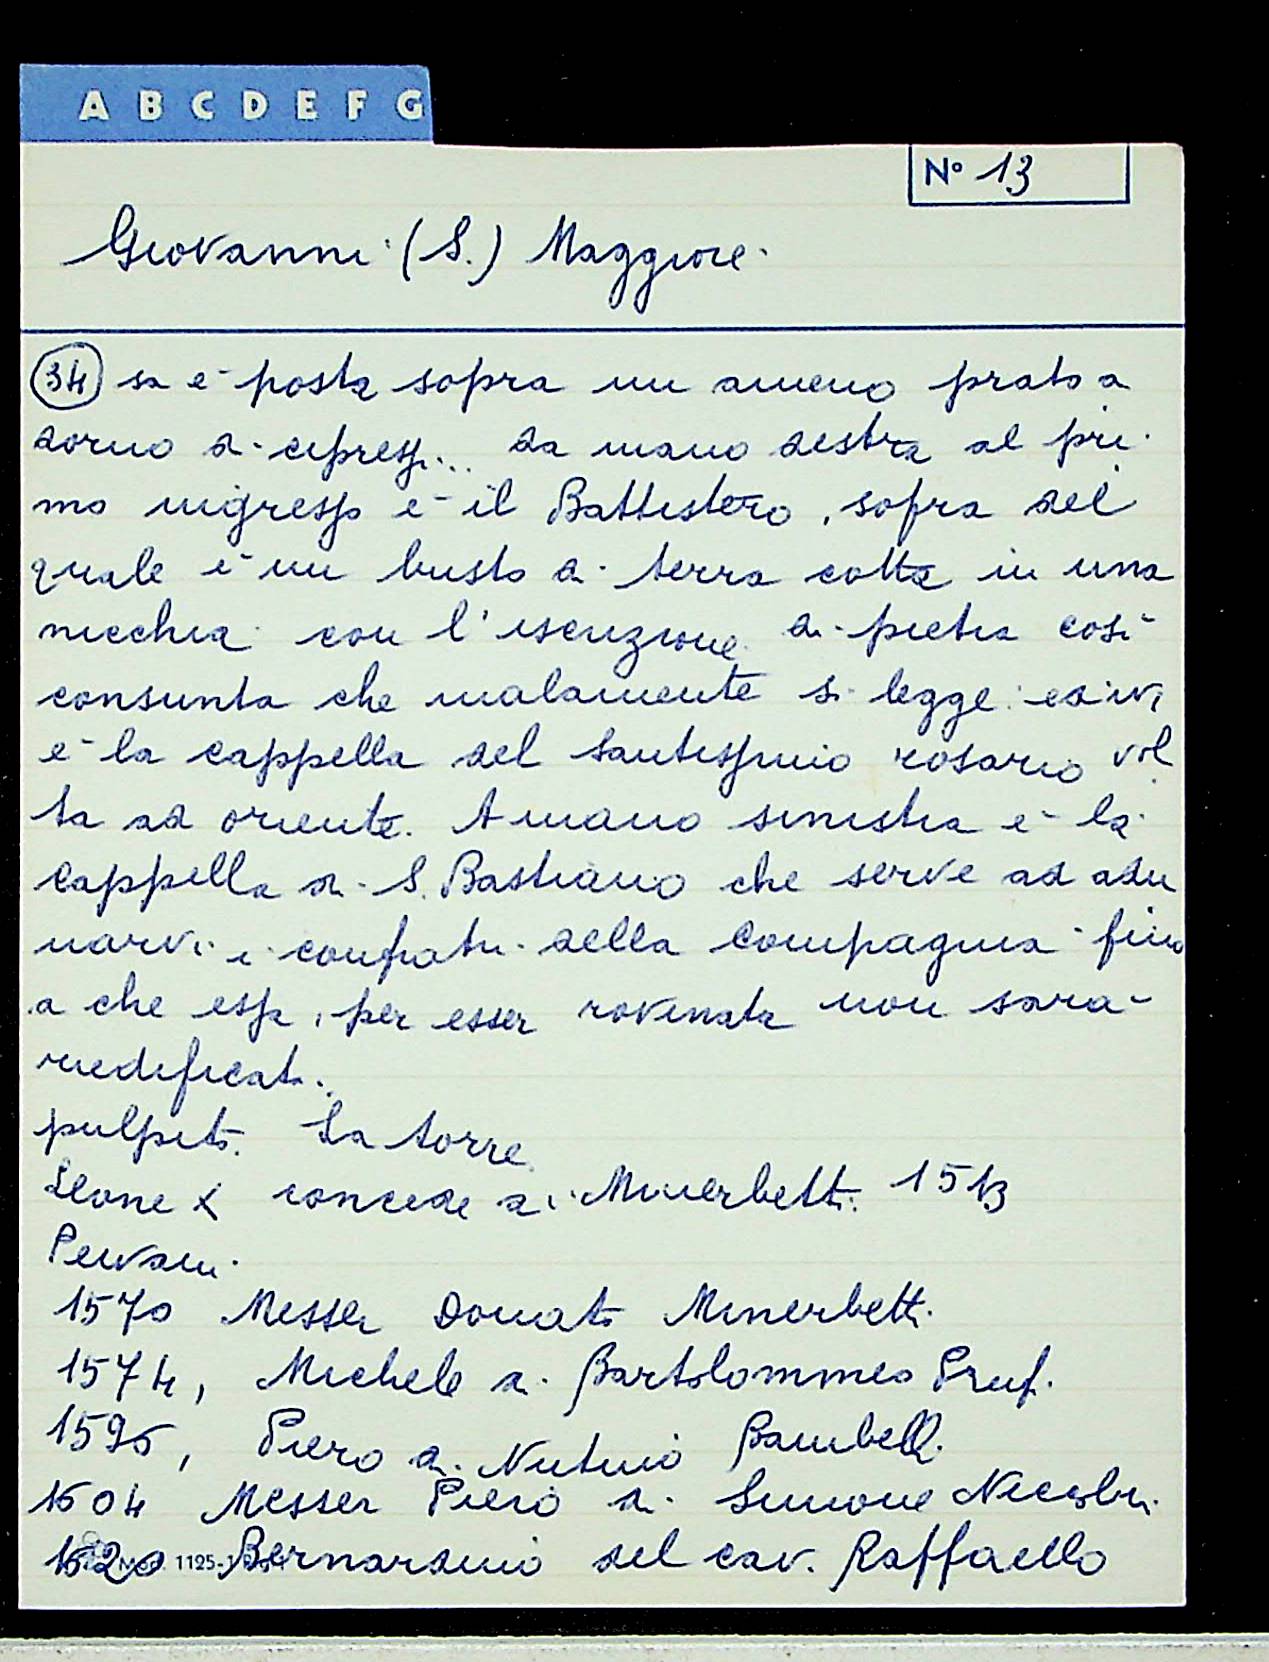 A B C D E F G
N° 13
Giovanni (S.) Maggiore.
(34) sa è posta sopra un ameno prato a
dorno di cipressi... da mano destra al pri
mo ingresso è il Battistero, sopra del
quale è un busto di terra cotta in una
nicchia con l'iscrizione di pietra così
consunta che malamente si legge: ed ivi
è la cappella del Santissimo rosario vol
ta ad oriente. A mano sinistra è la
cappella di S. Bastiano che serve ad adu
narvi i confratri della compagnia fino
a che essa, per esser rovinata non sarà
riedificata.
pulpito. La torre.
Leone X concede ai Minerbetti. 1513
Pievani.
1570 Messer Donato Minerbetti.
1574, Michele di Bartolommeo
1595, Piero di
1604 Messer Piero di Simone
1620 Bernardino del cav. Raffaello